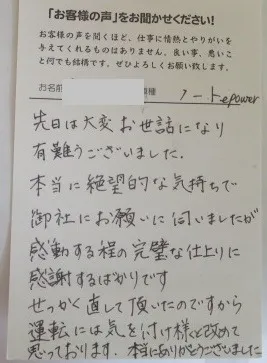 「お客様の声」をお聞かせください!
お客様の声を聞くほど、仕事に情熱とやりがいを
与えてくれるものはありません。良い事、悪いこ
と何でも結構です。ぜひよろしくお願い致します。
お名前 機種 ノート epower
先日は大変お世話になり
有難うございました.
本当に絶望的な気持ちで
御社にお願いに伺いましたが
感動する程の完璧な仕上りに
感謝するばかりです
せっかく直して頂いたのですから
運転には気を付け様と改めて
思っております. 本当にありがとうございました